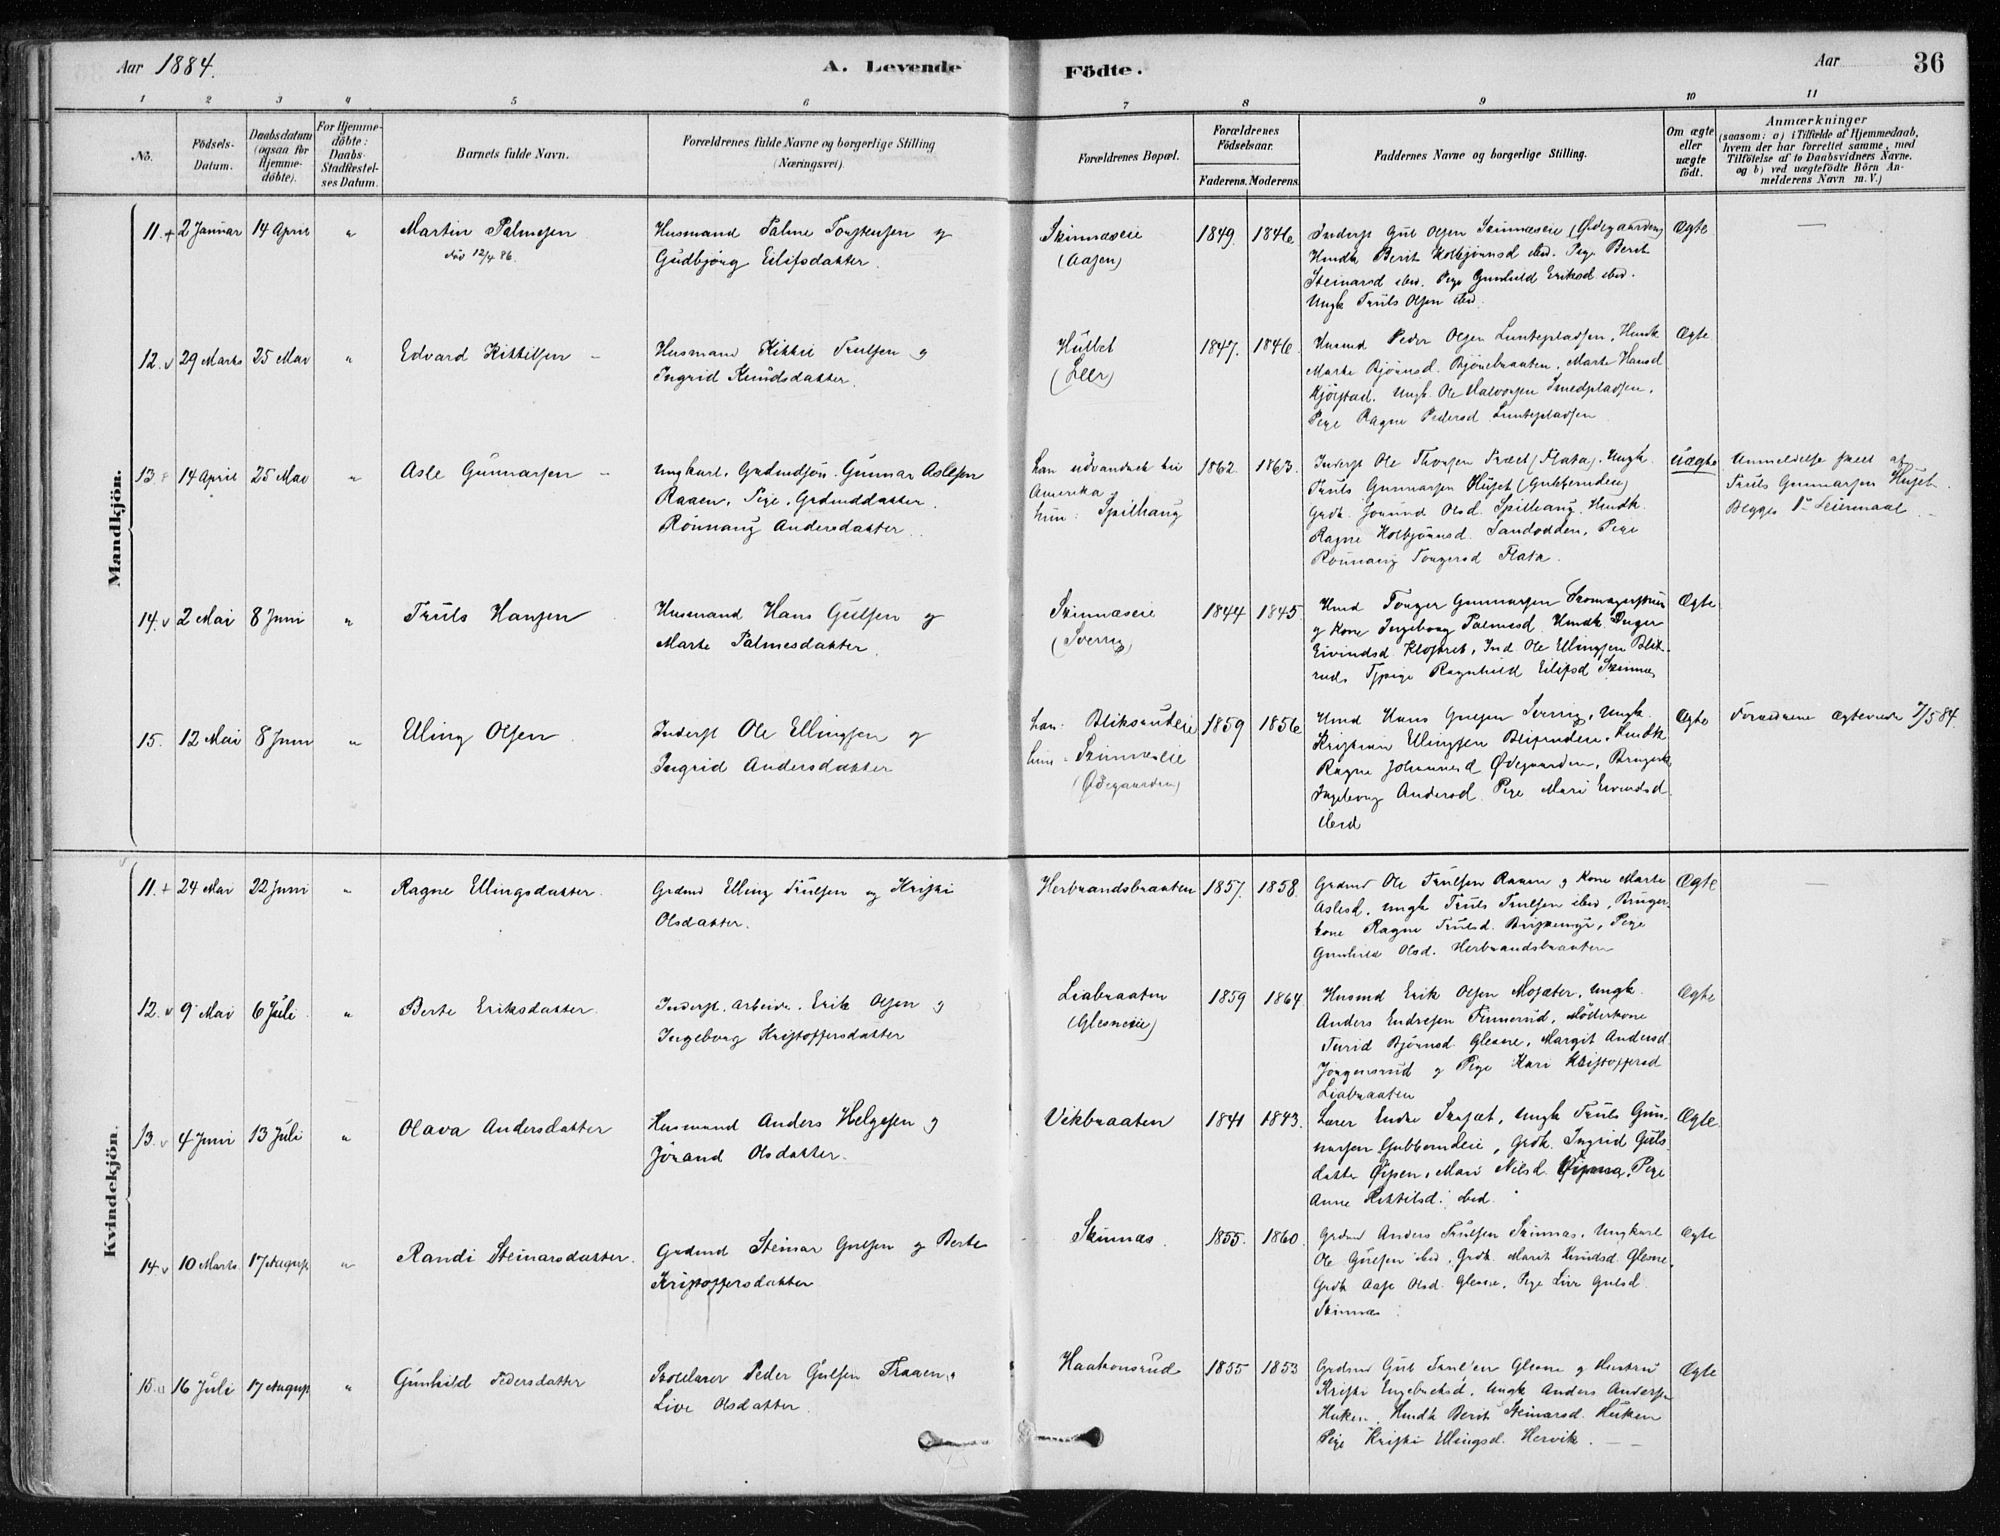 Aar 1884.
A. Levende
Födte.
Aar
36
1 2 3 4 5 6 7 8 9 10 11
No.
Födsels-Datum.
Daabsdatum (ogsaa for Hjemme-döbte).
For Hjemme-döbte: Daabs-Stadfæstel-ses Datum.
Barnets fulde Navn.
Forældrenes fulde Navne og borgerlige Stilling (Næringsvei).
Forældrenes Bopæl.
Forældrenes Födselsaar.
Faderens. Moderens.
Faddernes Navne og borgerlige Stilling.
Om ægte eller uægte födt.
Anmærkninger
(saasom: a) i Tilfælde af Hjemmedaab, hvem der har forrettet samme, med Tilföielse af to Daabsvidners Navne. og b) ved uægtefödte Börn An-melderens Navn m. V.)
Mandkjön.
11. + 2 Januar 14 April " Martin Palmesen
død 12/4 86.
Husmand Palme Torstensen og
Gudbjørg Eilifsdatter.
Skinnæseie
(Aasen)
1849. 1846.
Inderst Gul Olsen Skinnæseie (Ødegaarden)
Hmdk Berit Kolbjørnsd ibid. Pige Berit
Steinarsd ibid. Pige Gunhild Eriksd ibid.
Ungk Truls Olsen ibid.
Ægte
—
12. v 29 Marts 25 Mai " Edvard Kittilsen
Husmand Kittil Trulsen og
Ingrid Knudsdatter.
Hulbet
(Leer)
1847. 1846.
Husmd Peder Olsen Lunteplassen, Hmdk
Marte Bjørnsd. Bjønebraaten, Marte Hansd
Kjølstad. Ungk Ole Halvorsen Smedplassen,
Pige Ragne Pedersd Lunteplassen
Ægte
13. 14 April 25 Mai " Asle Gunnarsen
Ungkarl. Grdmdsøn. Gunnar Aslesen
Raaen. Pige. Grdmddatter.
Rønnaug Andersdatter.
han udvandret til
Amerika
hun: Spilhaug
1862. 1863.
Inderst Ole Thorsen Træet (Flata). Ungk.
Truls Gunnarsen Huset (Gubberudeie)
Grdk. Jorand Olsd. Spilhaug. Hmdk.
Ragne Kolbjørnsd. Sandodden, Pige
Rønnaug Torgersd Flata.
Uægte
Anmeldelse skeet af
Truls Gunnarsen Huset.
Begges 1ste Leiermaal.
14. v 2 Mai 8 Juni " Truls Hansen
Husmand Hans Gulsen og
Marte Palmesdatter.
Skinnæseie
(Sverrig)
1844 1845.
Hmd Torger Gunnarsen
og Kone Ingeborg Palmesd. Hmdk Inger
Eivindsd Klostret, Ind Ole Ellingsen Blik-
rud. Tjpige Ragnhild Eilifsd Skinnæs
Ægte
15. 12 Mai 8 Juni " Elling Olsen
Inderst Ole Ellingsen og
Ingrid Andersdatter
han: Bliksrudeie
hun: Skinnæseie
(Ødegaarden)
1859 1856
Hmd Hans Gulsen Sverrig, Ungk.
Kristian Ellingsen Bliksrudeie, Hmdk
Ragne Johannesd Ødegaarden, Brugerk
Ingeborg Andersd. Pige Mari Eivindsd
ibid
Ægte
Forældrene Ægteviede 7/5 84.
Kvindekjön.
11. + 24 Mai 22 Juni " Ragne Ellingsdatter.
Grdmd Elling Trulsen og Kristi
Olsdatter.
Herbrandsbraaten
1857. 1858.
Grdmd Ole Trulsen Raaen og Kone Marte
Aslesd. Ungk Truls Trulsen ibid, Bruger-
kone Ragne Trulsd. , Pige
Gunhild Olsd. Herbrandsbraaten
Ægte
—
12. v 9 Mai 6 Juli " Berte Eriksdatter.
Inderst, Arbeider. Erik Olsen og
Ingeborg Kristoffersdatter
Liabraaten
(Glesneeie)
1859 1864.
Husmd Erik Olsen Mosæter, Ungk.
Anders Endresen Finnerud, Føderkone
Turid Bjørnsd. Glesne, Margit Andersd.
Jørgensrud og Pige Kari Kristoffersd
Liabraaten
Ægte
13. v 4 Juni 13 Juli " Olava Andersdatter
Husmand Anders Helgesen og
Jørand Olsdatter.
Vikbraaten
1841 1843.
Lærer Endre , Ungk Truls Gun-
narsen Gubberudeie, Grdk. Ingrid Guls-
datter , Mari Nilsd. , Pige
Anne Kittilsd. ibid.
Ægte
14. v 10 Marts 17 August " Randi Steinarsdatter.
Grdmd Steinar Gulsen og Berte
Kristoffersdatter
Skinnæs.
1855. 1860.
Grdmd Anders Trulsen Skinnæs, Ungkarl
Ole Gulsen ibid, Grdk. Marit Knudsd. Glesne,
Grdk Aase Olsd. Glesne, Pige Live Gulsd.
Skinnæs.
Ægte
15. 16 Juli 17 August " Gunhild Pedersdatter
Skolelærer Peder Gulsen Traaen,
Live Olsdatter.
Haakonsrud
1855 1853
Grdmd Gul Trulsen Glesne og Hustru
Kristi Engebretsd, Ungk Anders Andersen
Huken, Hmdk Berit Steinarsd. Huken
Pige Kristi Ellingsd. Hervik.
Ægte